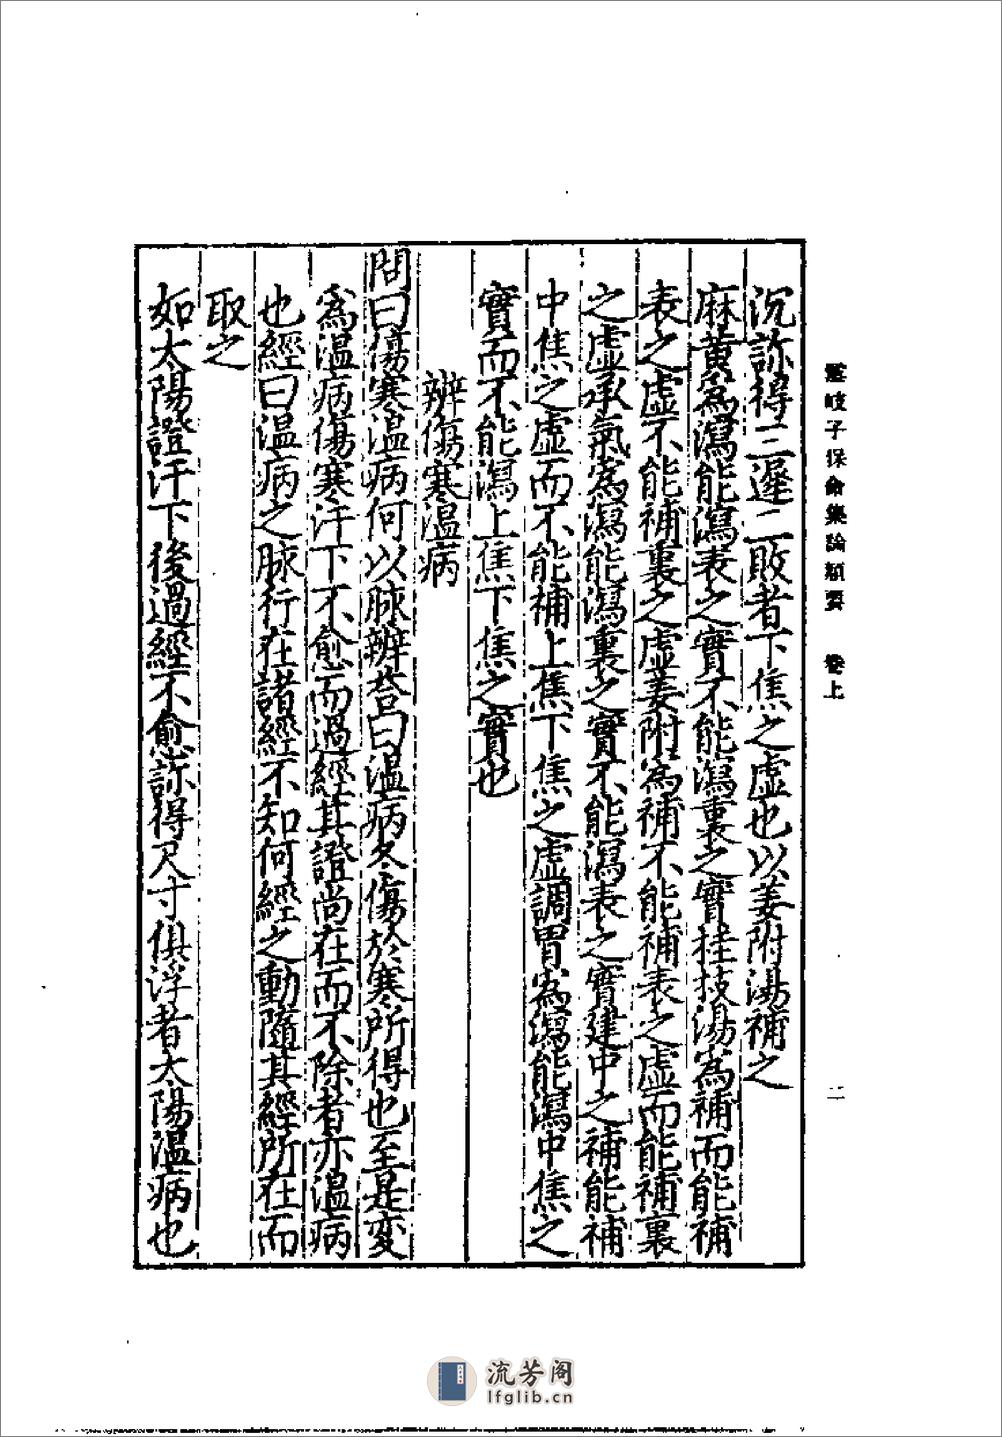 雲岐子保命集論類要 卷上
二
沉診得三遲二敗者下焦之虛也以姜附湯補之
麻黄為瀉能瀉表之實不能瀉裏之實桂枝湯為補而能補
表之虛不能補裏之虛姜附為補不能補表之虛而能補裏
之虛承氣為瀉能瀉裏之實不能瀉表之實建中之補能補
中焦之虛而不能補上焦下焦之虛調胃為瀉能瀉中焦之
實而不能瀉上焦下焦之實也
辨傷寒溫病
問曰傷寒溫病何以脉辨荅曰溫病冬傷於寒所得也至是変
為溫病傷寒汗下不愈而過經其證尚在而不除者亦溫病
也經曰溫病之脉行在諸經不知何經之動隨其經所在而
取之
如太陽證汗下後過經不愈診得尺寸俱浮者太陽溫病也
流芳阁
lfglib.cn